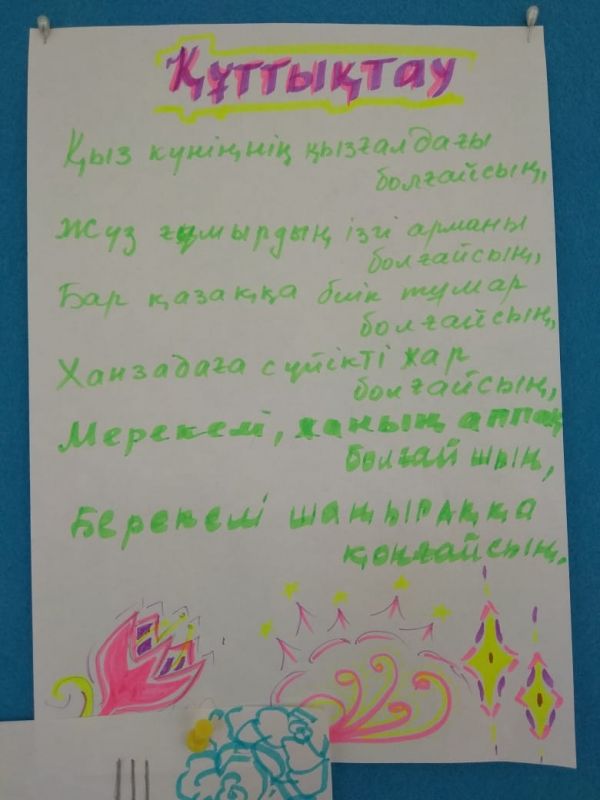 Құттықтау
Қыз күніңнің қызғалдағы
болғайсың,
Жүз ғұмырдың ізгі арманы
болғайсың,
Бар қазаққа биік тұмар
болғайсың,
Ханзадаға сүйікті жар
болғайсың,
Мерекелі, жаның аппақ
болғай шың,
Берекелі шаңыраққа
қонғайсың.